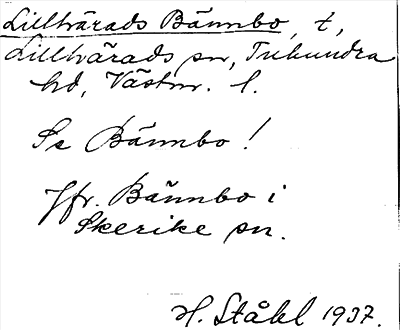 Lillhärads Bännbo, t,
Lillhärads sn, Tuhundra
hd, Västm. l.
Se Bännbo!
Jfr. Bännbo i
Skerike sn.
H. Ståhl 1937.